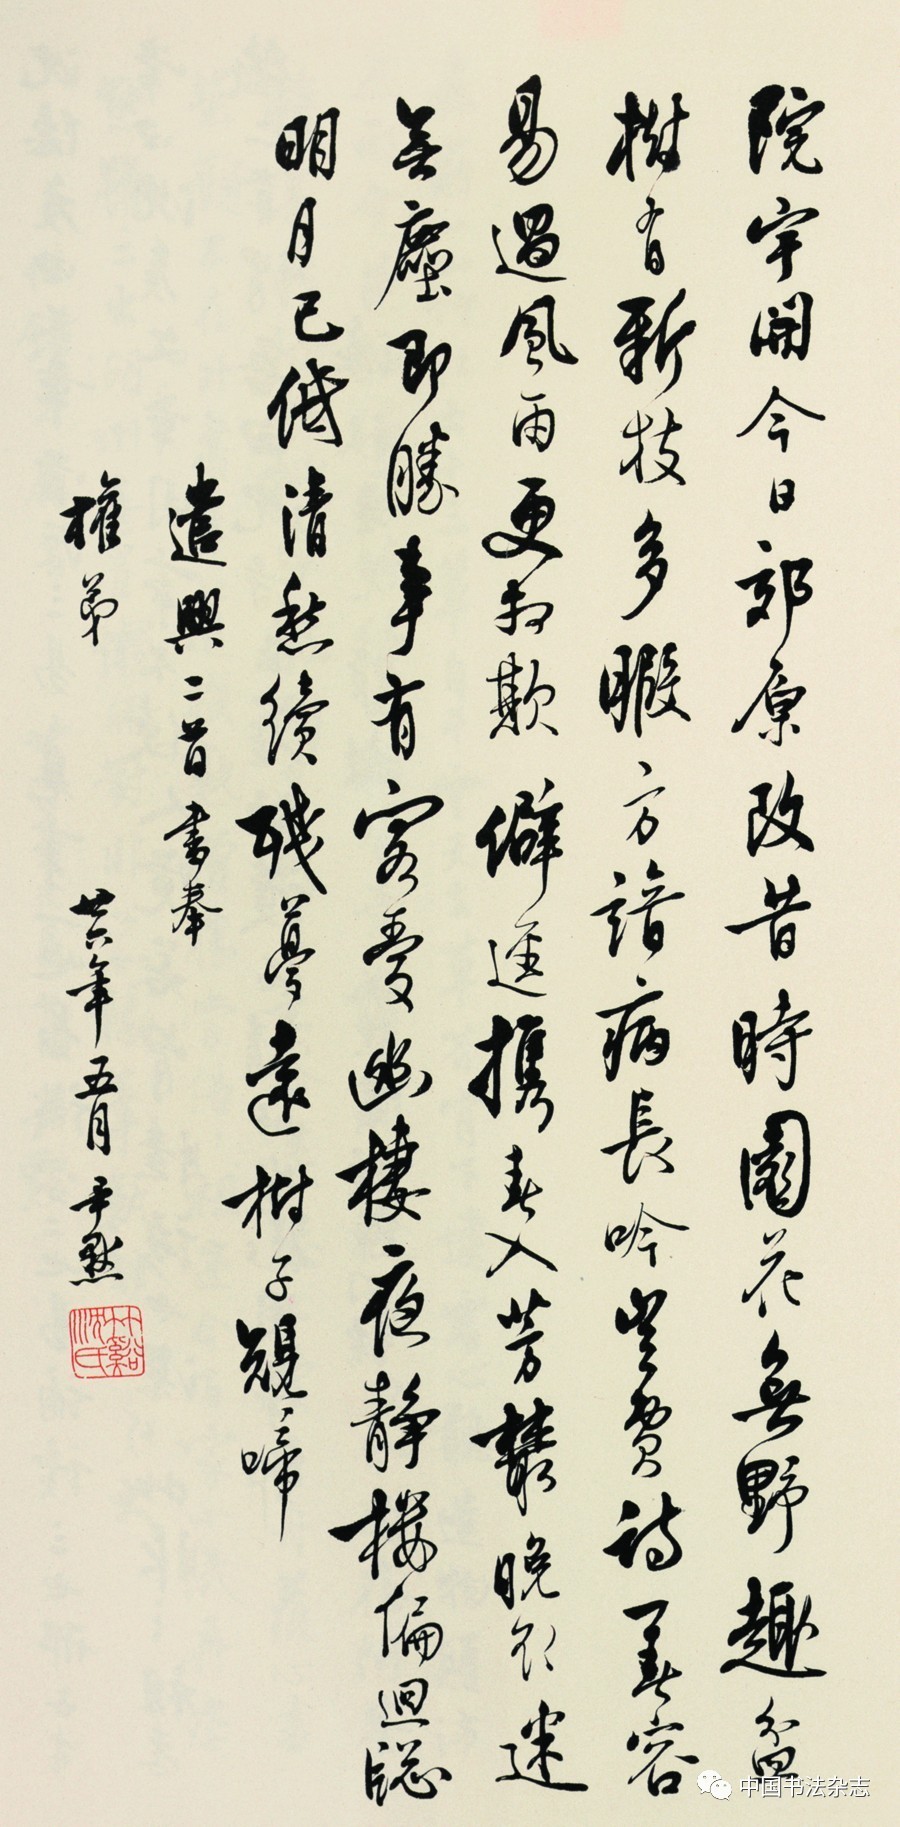 院宇開今日郊原改昔時園花無野趣盆
樹有新枝多暇方諳病長吟豈費詩一春容
易過風雨更相欺 僻逕携春入芳叢晚欲迷
無塵即勝事有客愛幽棲夜靜樓偏迥牕
明月已低清愁續殘夢遠樹子規啼
遣興二首書奉
權弟
廿六年五月 尹默
竹谿沈氏
中国书法杂志